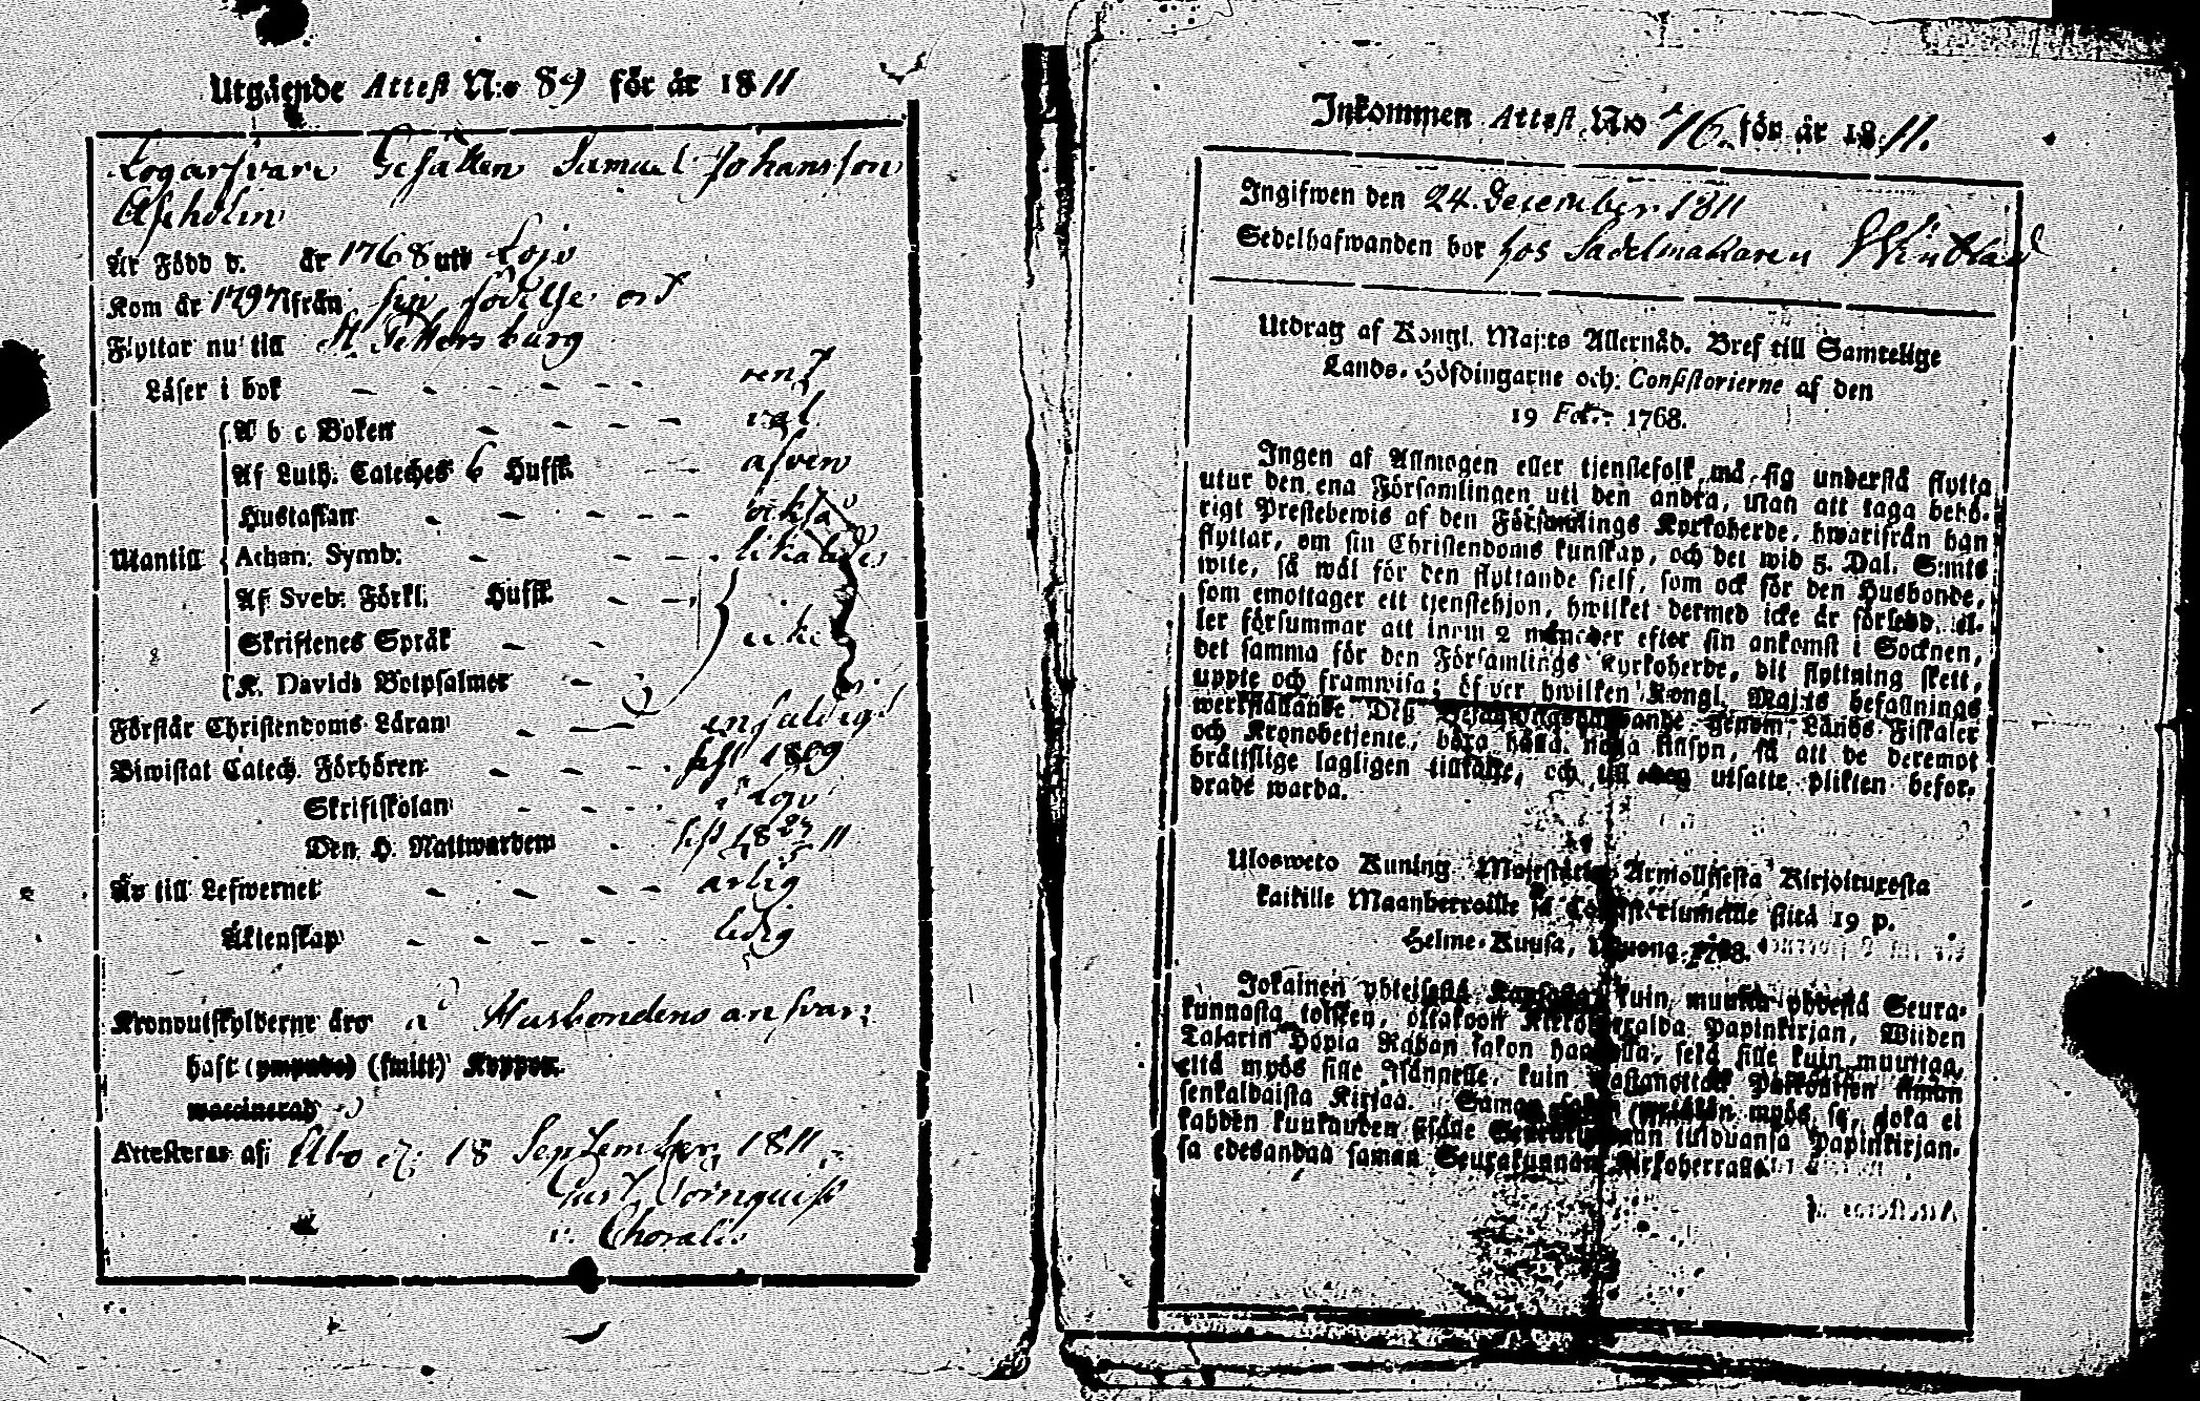 Utgående Attest N:o 89 för år 1811
Gesällen Samuel Johansson
Är Född d. år 1768 uti Lojo
Kom år 1797 ifrån sin födelse ort
Flyttar nu till St Petersburg
Läser i bok - - - - - - rent
A b c Boken - - - - väl
Af Luth. Cateches 6 Hufst. - - äfven
Hustaflan - - - - -
Utantill Athan. Symb: - - - - likaledes
Af Sveb: Förkl. Hufst. - -
Skriftenes Språk - -
K. Davids Botpsalmer -
Förstår Christendoms Läran - - enfaldigt
Biwistat Catech. Förhören - - - sist 1809
Skriftskolan - - -
Den H. Nattwarden - sist 18 11
Är till Lefwernet - - - - ärlig
Äktenskap - - - - - ledig
Kronoutskylderne äro å Husbondens ansvar
haft (ympade) (smitt) Koppor.
waccinerad
Attesteras af: Åbo d. 18 September 1811
Inkommen Attest N:o 76. för år 1811.
Ingifwen den 24. December 1811
Sedelhafwanden bor hos Sadelmakaren
Utdrag af Kongl. Maj:ts Allernåd. Bref till Samtelige
Lands-Höfdingarne och Consistorierne af den
19 Febr: 1768.
Ingen af Allmogen eller tjenstefolk må sig understå flytta
utur den ena Församlingen uti den andra, utan att taga behö-
rigt Prestebewis af den Församlings Kyrkoherde, hwarifrån han
flyttar, om sin Christendoms kunskap, och det wid 5. Dal. S:mts
wite, så wäl för den flyttande sielf, som ock för den Husbonde,
som emottager ett tjenstehjon, hwilket dermed icke är försedd, el-
ler försummar att inom 2 månader efter sin ankomst i Socknen,
det samma för den Församlings Kyrkoherde, dit flyttning skett,
uppte och framwisa; öfver hwilken Kongl. Maj:ts befallnings
werkställande Deß Befallningshafwande genom Lands-Fiskaler
och Kronobetjente, böra hålla noga tillsyn, så att de deremot
bråttslige lagligen tilltalte, och till den utsatte plikten befor-
drade warda.
Ulosweto Kuning. Majestätin Armollisesta Kirjoituxesta
kaikille Maanherroille ja Consistoriumeille siitä 19 p.
Helme-Kuusa, Wuonna 1768.
Jokainen yhteisestä Kansasta, kuin muutta yhdestä Seura-
kunnasta toiseen, ottakoon Kirkoherralda Papinkirjan, Wiiden
Talarin Hopia Rahan sakon haastolla, sekä sille kuin muuttaa,
että myös sille Isännelle, kuin wastanottaa Palkollisen ilman
senkaldaista Kirjaa. Saman sakon wetäkön myös se, joka ei
kahden kuukauden sisälle Seurakundaan tulduansa Papinkirjan-
sa edesandaa saman Seurakunnan Kirkoherralle.